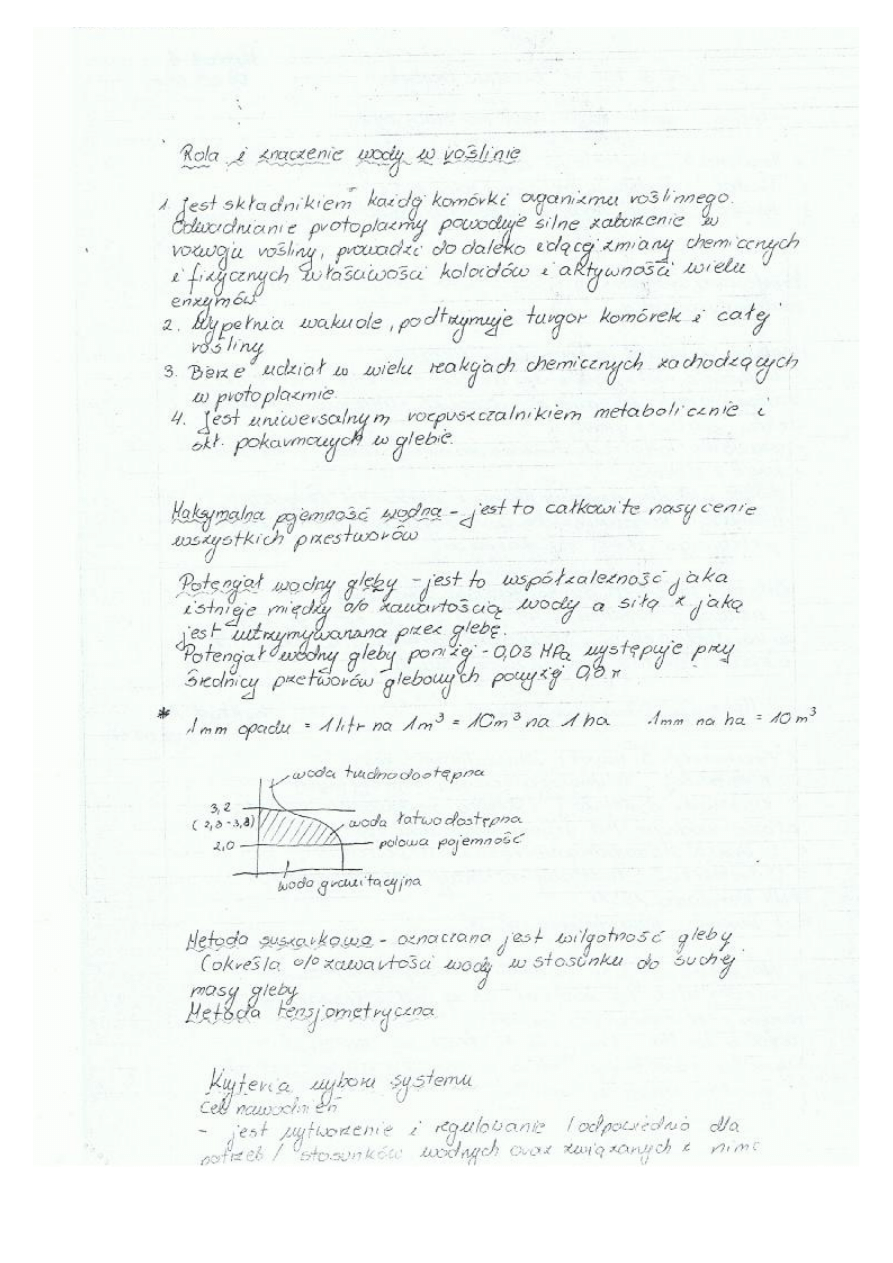 Rola i znaczenie wody w roślinie
1. Jest składnikiem każdej komórki organizmu roślinnego.
Odwadnianie protoplazmy powoduje silne zaburzenie w
rozwoju rośliny, prowadzi do daleko idącej zmiany chemicznych
i fizycznych właściwości koloidów i aktywności wielu
enzymów
2. Wypełnia wakuole, podtrzymuje turgor komórek i całej
rośliny
3. Bierze udział w wielu reakcjach chemicznych zachodzących
w protoplazmie.
4. Jest uniwersalnym rozpuszczalnikiem metabolicznie i
skł. pokarmowych w glebie.
Maksymalna pojemność wodna - jest to całkowite nasycenie
wszystkich przestworów
Potencjał wodny gleby - jest to współzależność jaka
istnieje między % zawartością wody a siłą z jaką
jest utrzymywana przez glebę.
Potencjał wodny gleby poniżej - 0,03 MPa występuje przy
średnicy przetworów glebowych powyżej
* 1mm opadu = 1 litr na 1m³ = 10m³ na 1 ha 1mm na ha = 10 m³
woda trudnodostępna
3,2
(2,8 - 3,8)
woda łatwodostępna
2,0
polowa pojemność
woda grawitacyjna
Metoda suszarkowa - oznaczana jest wilgotność gleby
(określa % zawartości wody w stosunku do suchej
masy gleby
Metoda tensjometryczna
Kryteria wyboru systemu
Cel nawodnień
- jest wytworzenie i regulowanie /odpowiednio dla
potrzeb/ stosunków wodnych oraz związanych z nimi